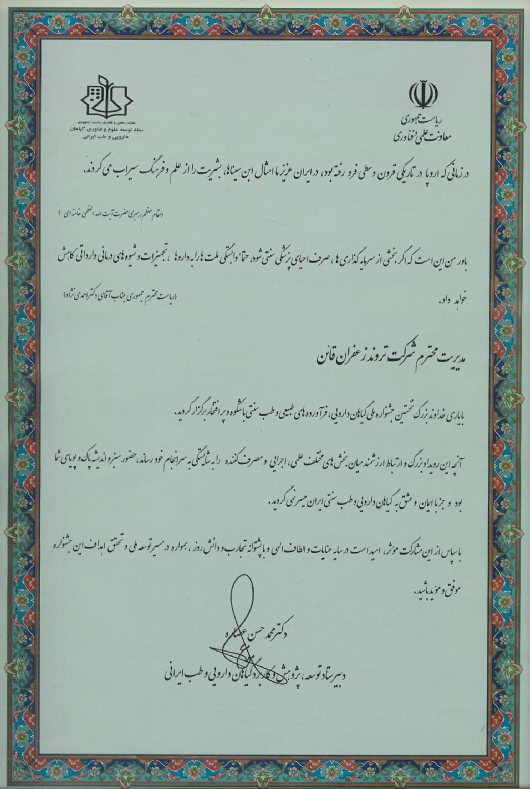 ریاست جمهوری
معاونت علمی و فناوری
معاونت علمی و فناوری ریاست جمهوری
ستاد توسعه علوم و فناوری گیاهان
دارویی و طب ایرانی
در زمانی که اروپا در تاریکی قرون وسطی فرو رفته بود، در ایران عزیز ما امثال ابن سیناها، بشریت را از علم و فرهنگ سیراب می کردند.
(مقام معظم رهبری حضرت آیت الله العظمی خامنه ای)
باور من این است که اگر بخشی از سرمایه گذاری ها، صرف احیای پزشکی سنتی شود، حتماً وابستگی ملت ها را به داروها، تجهیزات و شیوه های درمانی وارداتی کاهش
خواهد داد.
(ریاست محترم جمهوری جناب آقای دکتر احمدی نژاد)
مدیریت محترم شرکت تروند زعفران قائن
با یاری خداوند بزرگ نخستین جشنواره ملی گیاهان دارویی، فرآورده های طبیعی و طب سنتی با شکوه و پر افتخار برگزار گردید.
آنچه این رویداد بزرگ و ارتباط ارزشمند میان بخش های مختلف علمی، اجرایی و مصرف کننده را به شایستگی به سرانجام خود رساند، حضور سبز و اندیشه پاک و پویای شما
بود و جز با ایمان و عشق به گیاهان دارویی و طب سنتی ایران میسر نمی گردید.
با سپاس از این مشارکت مؤثر، امید است در سایه عنایات و الطاف الهی و با پشتوانه تجارب و دانش روز، همواره در مسیر توسعه ملی و تحقق اهداف این جشنواره
موفق و مؤید باشید.
دکتر محمد حسن عصاره
دبیر ستاد توسعه، پژوهش و کاربرد گیاهان دارویی و طب ایرانی